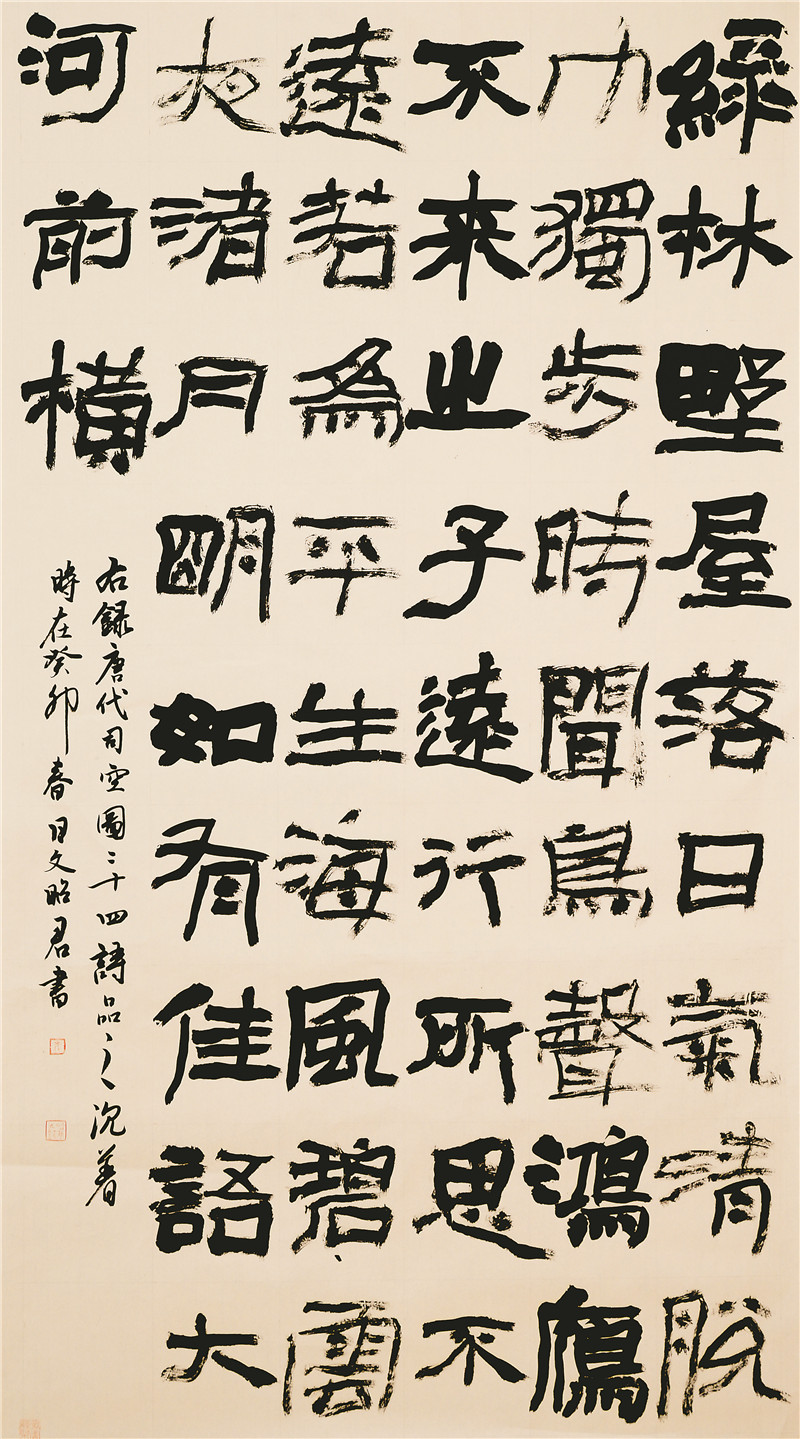 綠林野屋落日氣清脫
巾獨步時聞鳥聲鴻鴈
不來之子遠行所思不
遠若為平生海風碧雲
夜渚月明如有佳語大
河前横
右錄唐代司空圖二十四詩品之沉着
時在癸卯春日文昭君書